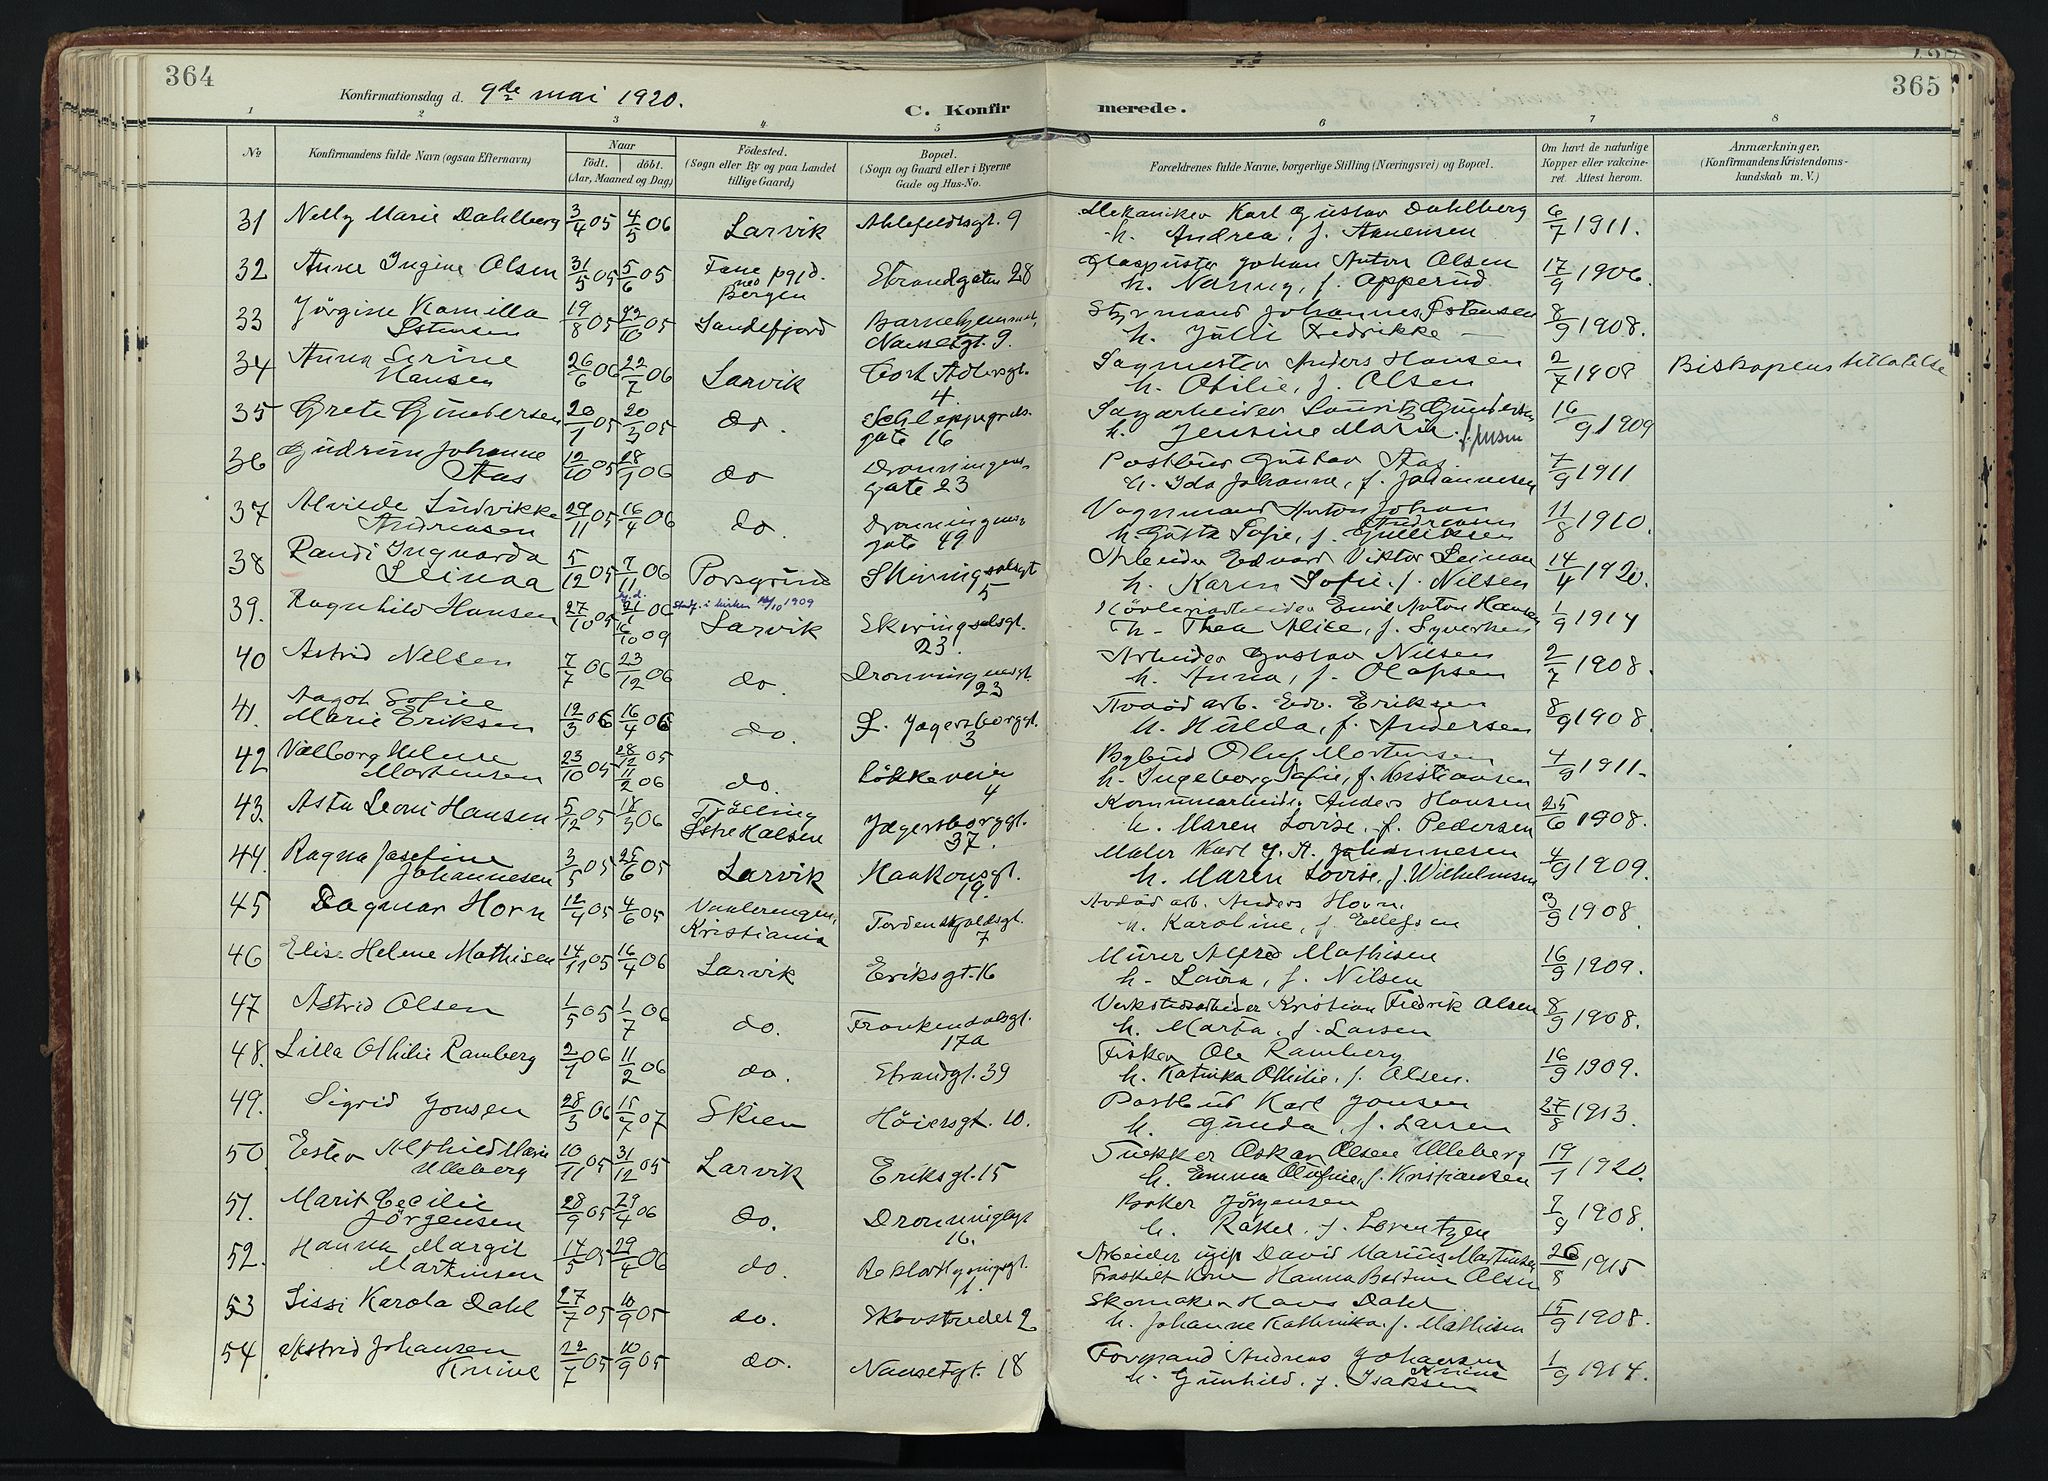 364
365
Konfirmationsdag d. 9de mai 1920.
C. Konfirmerede.
1 2 3 4 5 6 7 8
No
Konfirmandens fulde Navn (ogsaa Efternavn)
Naar
födt. döbt.
(Aar, Maaned og Dag)
Födested.
(Sogn eller By og paa Landet
tillige Gaard)
Bopæl.
(Sogn og Gaard eller i Byerne
Gade og Hus-No.
Forældrenes fulde Navne, borgerlige Stilling (Næringsvei) og Bopæl.
Om havt de naturlige
Kopper eller vakcine-
ret. Attest herom.
Anmærkninger.
(Konfirmandens Kristendoms-
kundskab m. V.)
31 Nelly Marie Dahlberg 3/4 05 4/5 06 Larvik Ahlefeldtsgt. 9 Mekaniker Karl Gustav Dahlberg 6/7 1911.
h. Andrea, f.
32 Anne Ingine Olsen 31/5 05 5/6 05 Fane pgjd. Strandgaten 28 Glaspuster Johan Anton Olsen 17/9 1906.
ved Bergen h. Nanny, f. Apperud
33 Jörgine Kamilla 19/8 05 22/10 05 Sandefjord Barnehjemmet, Styrmand Johannes Östensen 8/9 1908.
Östensen Nansetgt. 9. h. Julie Fredrikke —
34 Anna Serine 26/6 06 22/7 06 Larvik Cort Adlersgt. Sagmester Anders Hansen 2/7 1908 Biskopens tillatelse
Hansen 4. h. Otilie, f. Olsen
35 Grete Gundersen 20/1 05 20/3 05 do. Schleppegrels- Sagarbeider Lauritz Gundersen 16/9 1909
gate 16 h. Jensine Maria f. Jensen
36 Gudrun Johanne 12/10 05 28/1 06 do Dronningens- Postbud Gustav Aas 7/9 1911
Aas gate 23 h. Ida Johanne, f. Johannesen
37 Alvilde Ludvikke 29/11 05 16/4 06 do. Dronningens- Vognmand Anton Johan 11/8 1910.
Andreasen gate 49 Andreasen
h. Gusta Sofie, f. Gulliksen
38 Randi Ingvarda 5/12 05 7/11 06 Porsgrund Skiringsalsgt Arbeider Edvard Viktor Leinaa 14/4 1920.
Leinaa 5 h. Karen Sofie, f. Nilsen
39. Ragnhild Hansen 27/10 05 hj.d. 21/1 06 stadf. i kirken 10/10 1909 Larvik Skiringsalsgt. Høvleriarbeider Emil Anton Hansen 1/9 1914
10/10 09 23. h. Thea Alise, f. Syvertsen
40 Astrid Nilsen 7/7 06 23/12 06 do. Dronningensgt. Arbeider Gustav Nilsen 2/7 1908.
23 h. Anna, f. Olafsen
41. Aagot Sofie 12/3 06 16/4 06 do. F. Jagersborggt. arb. Edv. Eriksen 8/9 1908.
Marie Eriksen 3 h. Hulda, f. Andersen
42 Valborg Helene 23/10 05 28/12 05 do. Løkkeveien Bybud Oluf Martinsen 4/9 1911.
Martinsen 11/2 06 4 h. Ingeborg Sofie, f. Kristiansen
43. Asta Leoni Hansen 5/12 05 18/3 06 Tjölling Jegersborggt. Kommunearbeider Anders Hansen 25/6 1908.
Østre Halsen 37. h. Maren Lovise, f. Pedersen
44. Ragna Josefine 3/5 05 25/6 05 Larvik Haakonsgt. Maler Karl J. A. Johannesen 4/9 1909.
Johannesen 19. h. Maren Lovise, f. Wilhelmsen
45 Dagmar Horn 12/4 05 4/6 05 Vaalerengen, Tordenskjoldsgt. arb. Anders Horn. 3/9 1908.
Kristiania 7 h. Karoline, f. Ellefsen
46 Elise Helene Mathisen 14/11 05 16/4 06 Larvik Eriksgt. 16 Murer Alfred Mathisen 16/9 1909.
h. Laura, f. Nilsen
47 Astrid Olsen 1/5 05 1/7 06 do. Frankendalsgt. Verkstedsarbeider Kristian Fredrik Olsen 8/9 1908.
17a h. Marta, f. Larsen
48. Lilla Othilie Ramberg 2/1 06 11/2 06 do. Strandgt. 39 Fisker Ole Ramberg 16/9 1909.
h. Katinka Othilie, f. Olsen.
49. Sigrid Jonsen 28/3 06 15/7 07 Skien Höiersgt. 10. Postbud Karl Jonsen 27/8 1913.
h. Gunda, f. Larsen
50. Ester Alfhild Marie 10/11 05 31/12 05 Larvik Eriksgt. 15 Trækker Oskar Olsen Ulleberg 19/1 1920.
Ulleberg h. Emma Olufine, f. Kristiansen
51. Marit Cecilie 28/9 05 29/4 06 do. Dronninggt Baker Jörgensen 7/9 1908.
Jörgensen 16. h. Rakel, f. Lorentzen
52. Hanna Margit 14/5 05 29/4 06 do. Rektor Arbeider David Marius Martinsen 26/8 1915
Martinsen 1. Fraskilt Kone Hanna Bertine Olsen
53 Sissi Karola Dahl 27/7 05 10/9 05 do. Skovstredet 2 Skomaker Hans Dahl 15/9 1908.
h. Johanne Kathinka, f. Mathisen
54 Astrid Johansen 22/7 05 10/9 05 do. Nansetgt. 18 Formand Andreas Johansen 1/9 1914.
Knive Knive
h. Gunhild, f. Isaksen